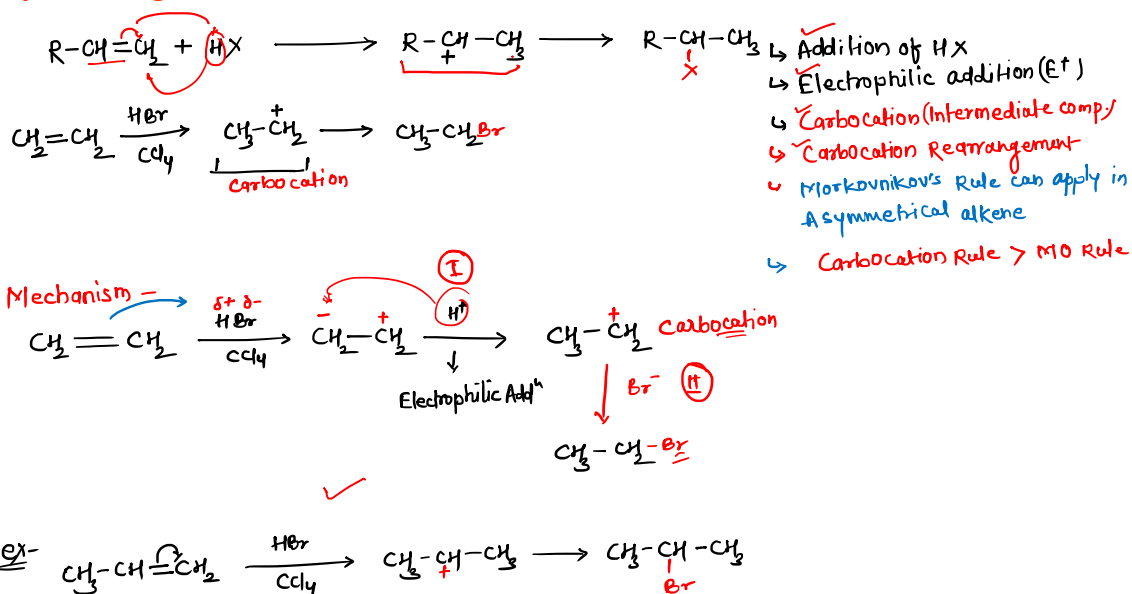 R-CH=CH₂ + HX ⟶ R-CH-CH₃ ⟶ R-CH-CH₃
+
X
↳ Addition of HX
↳ Electrophilic addition(E⁺)
↳ Carbocation(Intermediate comp.)
↳ Carbocation Rearrangement
↳ Morkovnikov's Rule can apply in
Asymmetrical alkene
↳ Carbocation Rule > MO Rule
CH₂=CH₂ HBr CCl₄ ⟶ CH₃-CH₂ + ⟶ CH₃-CH₂Br
Carbocation
Mechanism -
I
CH₂=CH₂ δ+ δ- HBr CCl₄ ⟶ - CH₂-CH₂ + H⁺ ⟶ CH₃-CH₂ + Carbocation
Electrophilic Addⁿ
Br⁻ II
CH₃-CH₂-Br
ex- CH₃-CH=CH₂ HBr CCl₄ ⟶ CH₃-CH-CH₃ ⟶ CH₃-CH-CH₃
+
Br